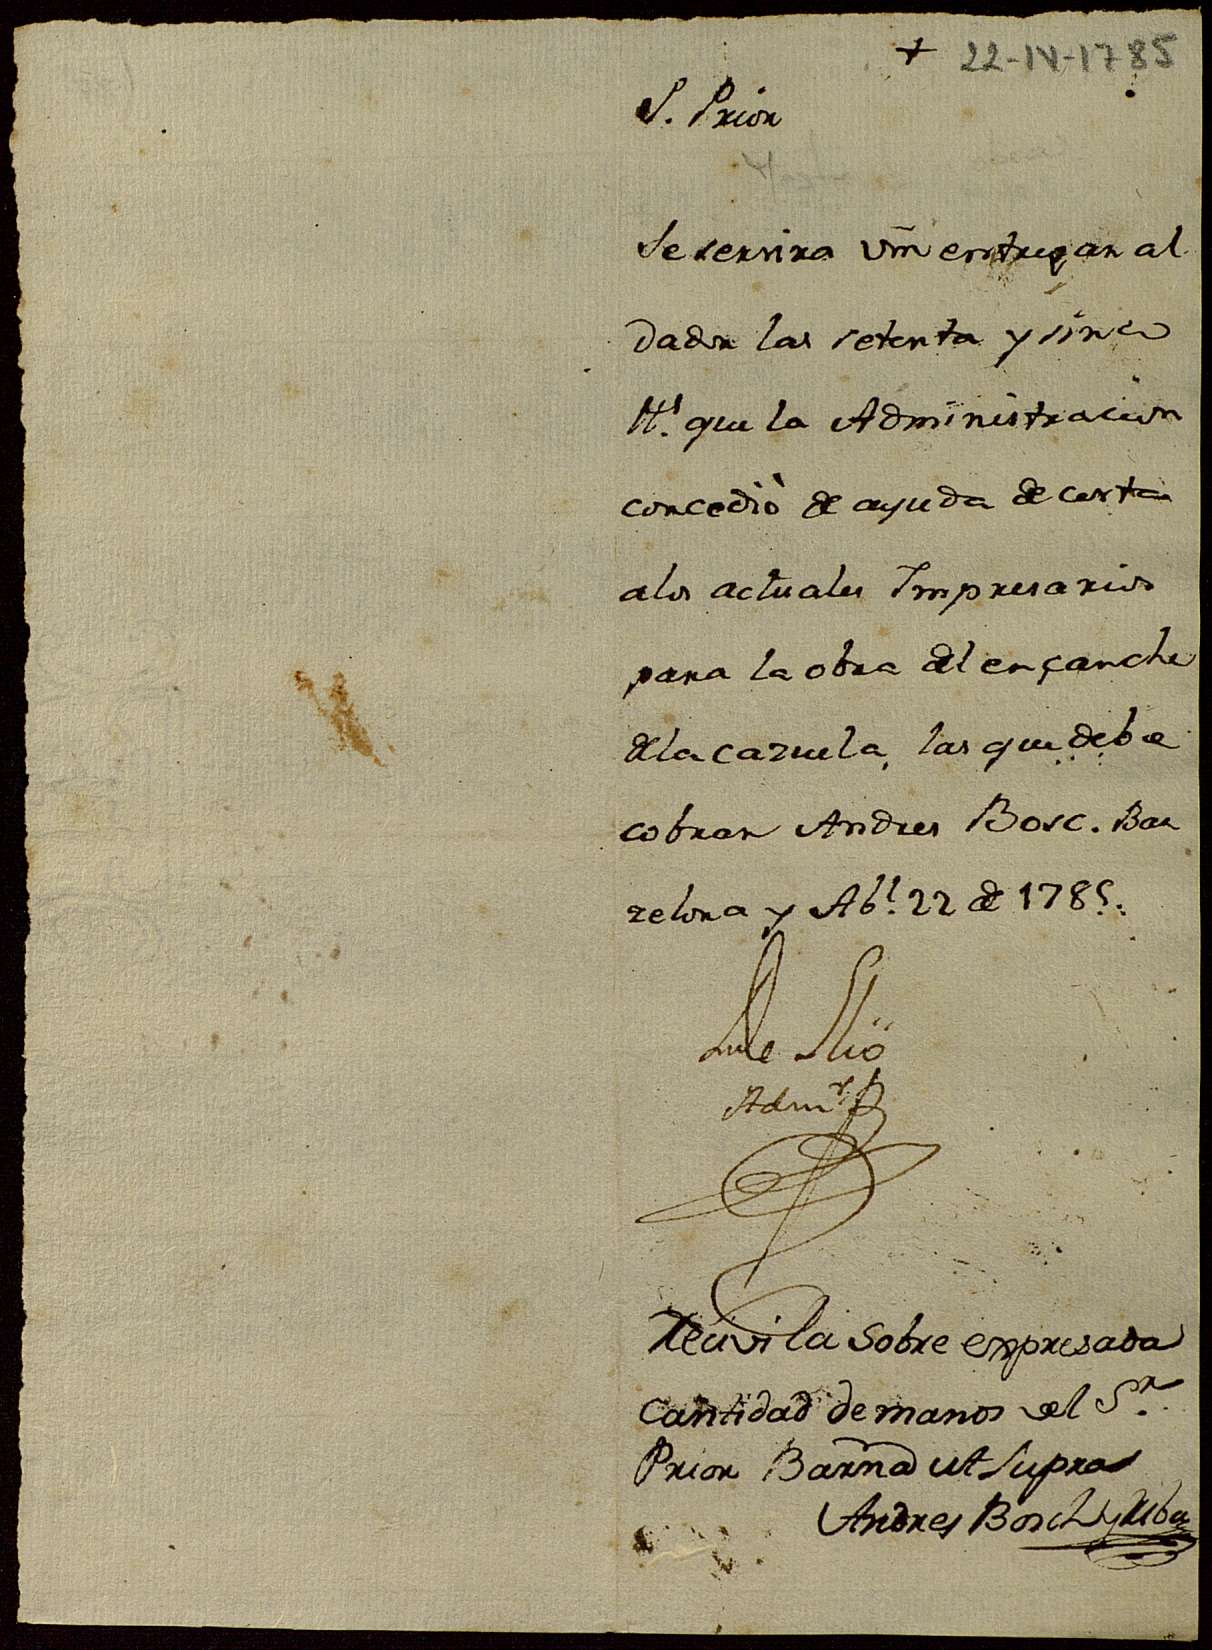 + 22-IV-1785
S. Prior
Se servira Vm̃ entregar al
dador las setenta y sinco
ll.s que la Administracion
concediò de ayuda de costa
alos actuales Impresarios
para la obra del ençanche
dela cazuela, las que debe
cobrar Andres Bosc. Bar
zelona y Ab.l 22 de 1785.
Adm.r
Recivi la sobre expresada
Cantidad de manos del S.r
Prior Barn̄a ut Supra
Andres Bosch y Riba